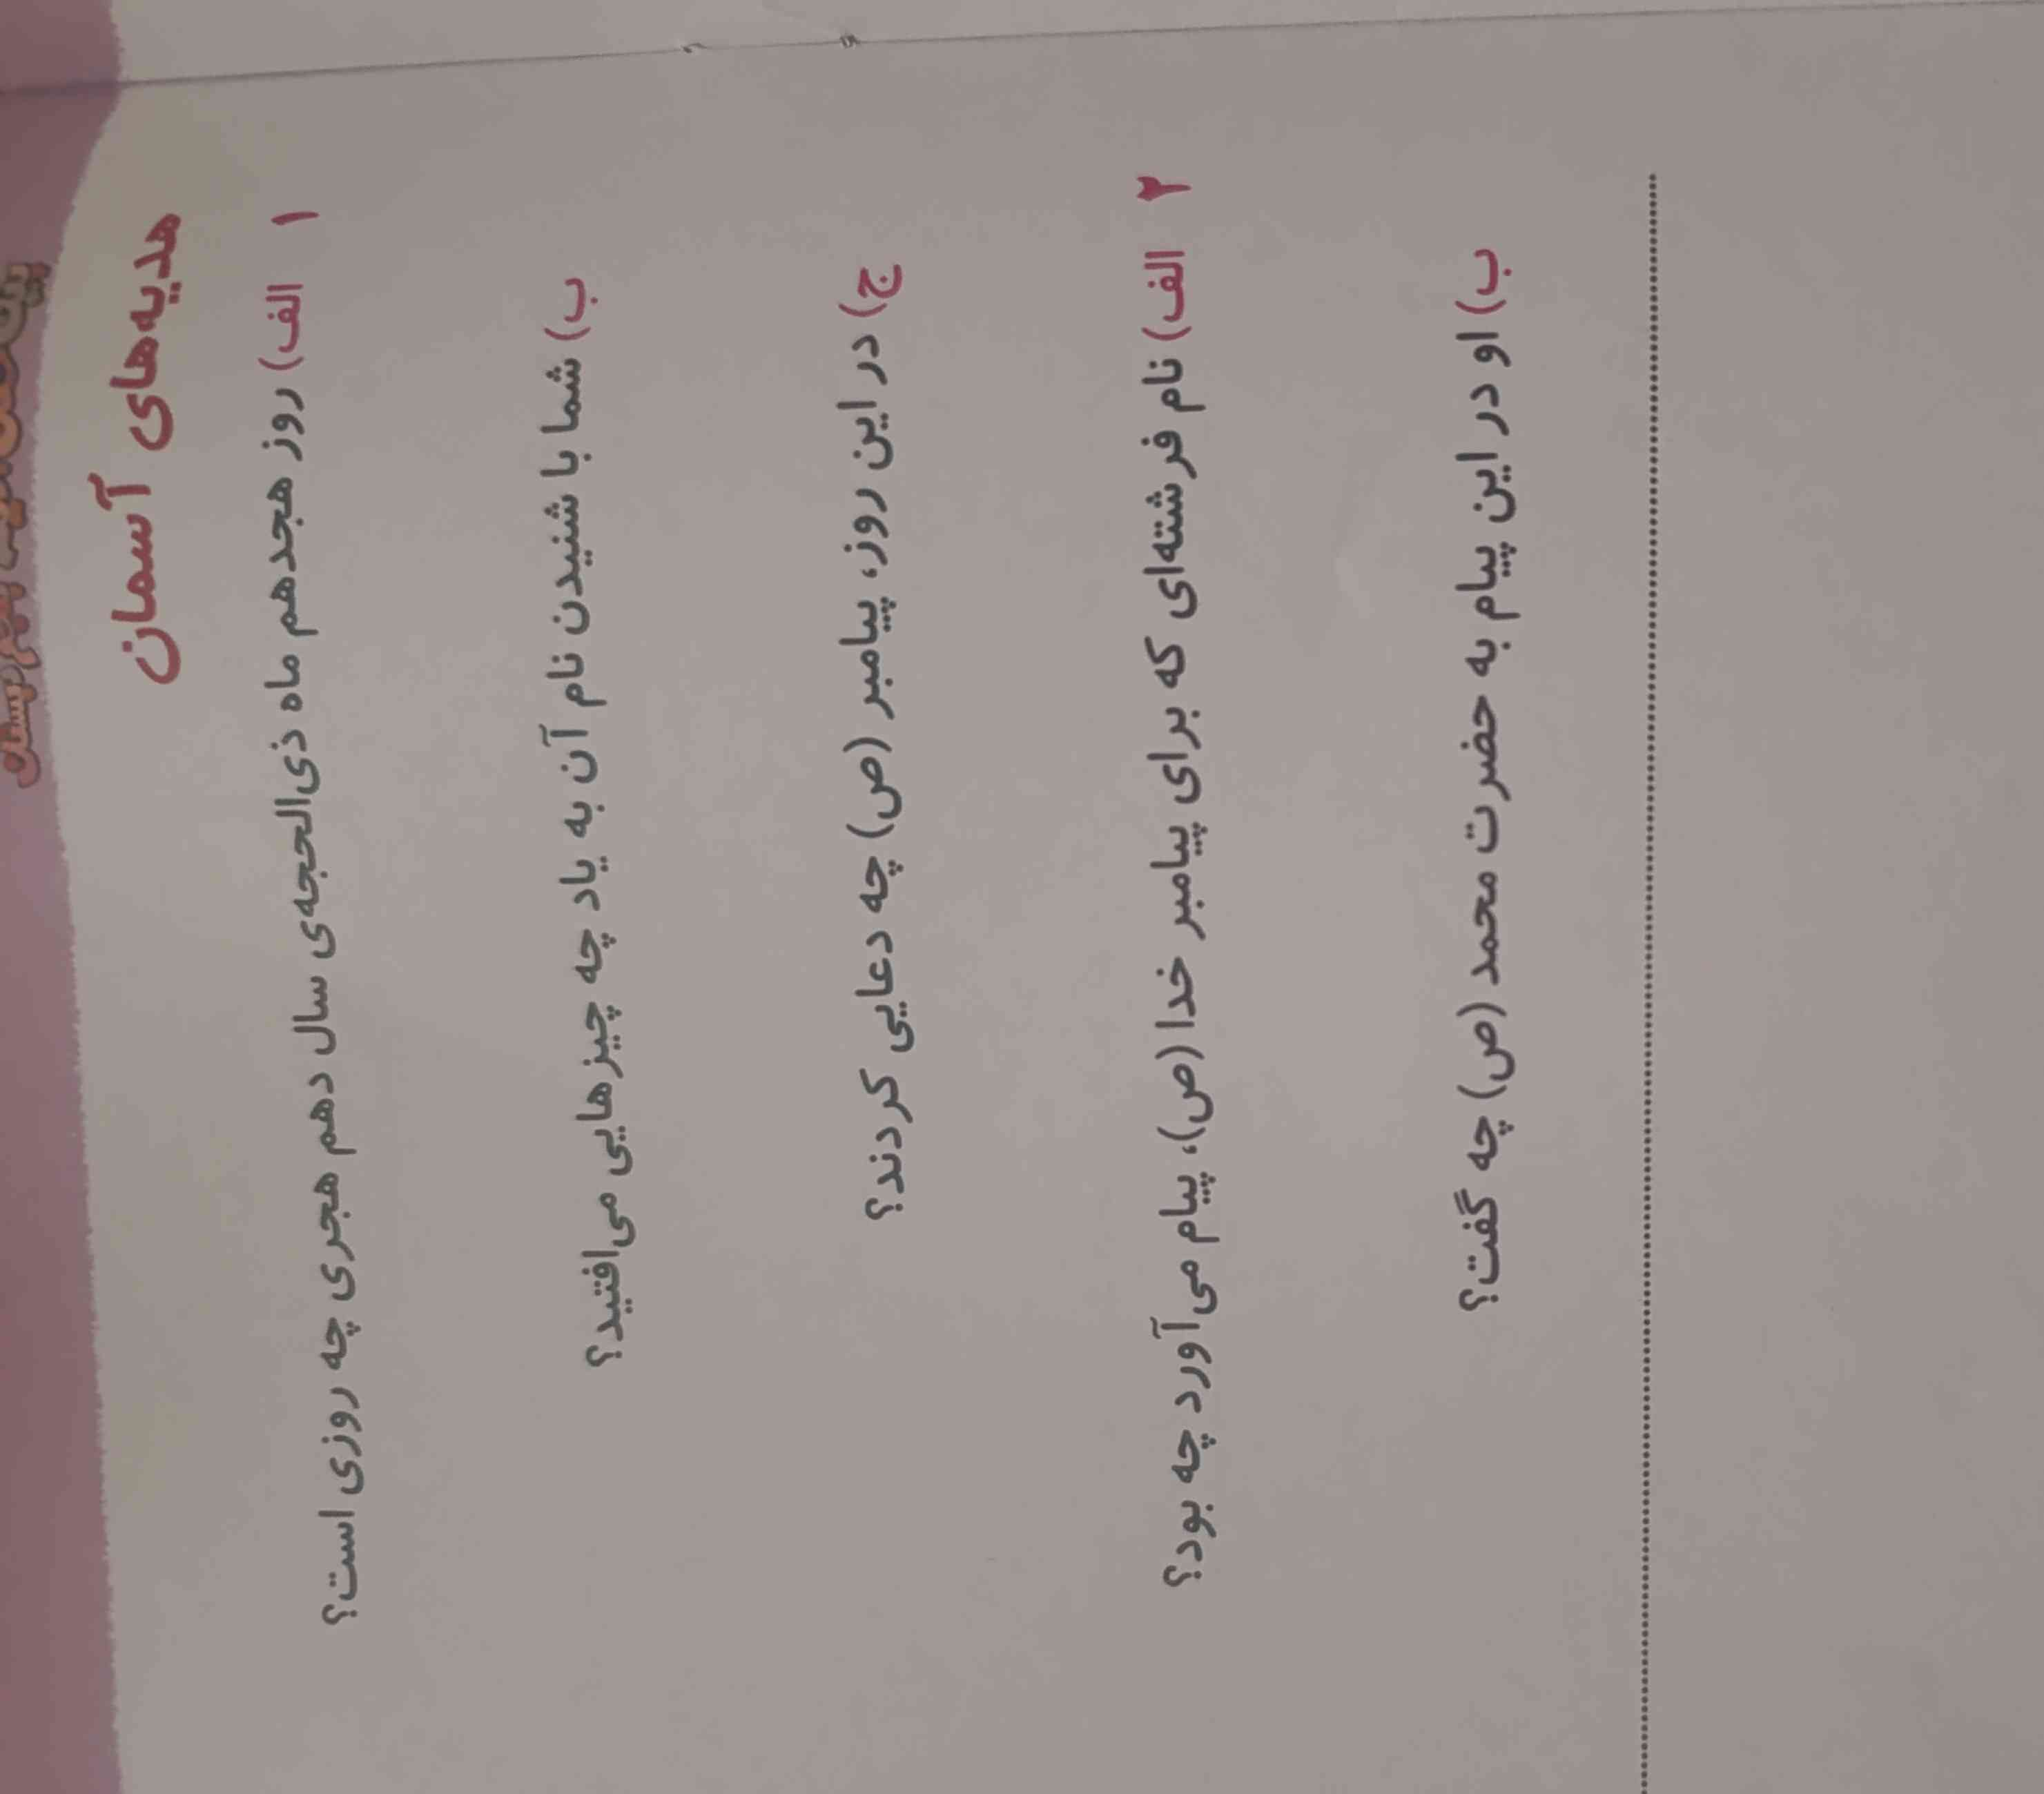 هدیه‌های آسمان
۱ الف) روز هجدهم ماه ذی‌الحجه‌ی سال دهم هجری چه روزی است؟
ب) شما با شنیدن نام آن به یاد چه چیزهایی می‌افتید؟
ج) در این روز، پیامبر (ص) چه دعایی کردند؟
۲ الف) نام فرشته‌ای که برای پیامبر خدا (ص)، پیام می‌آورد چه بود؟
ب) او در این پیام به حضرت محمد (ص) چه گفت؟